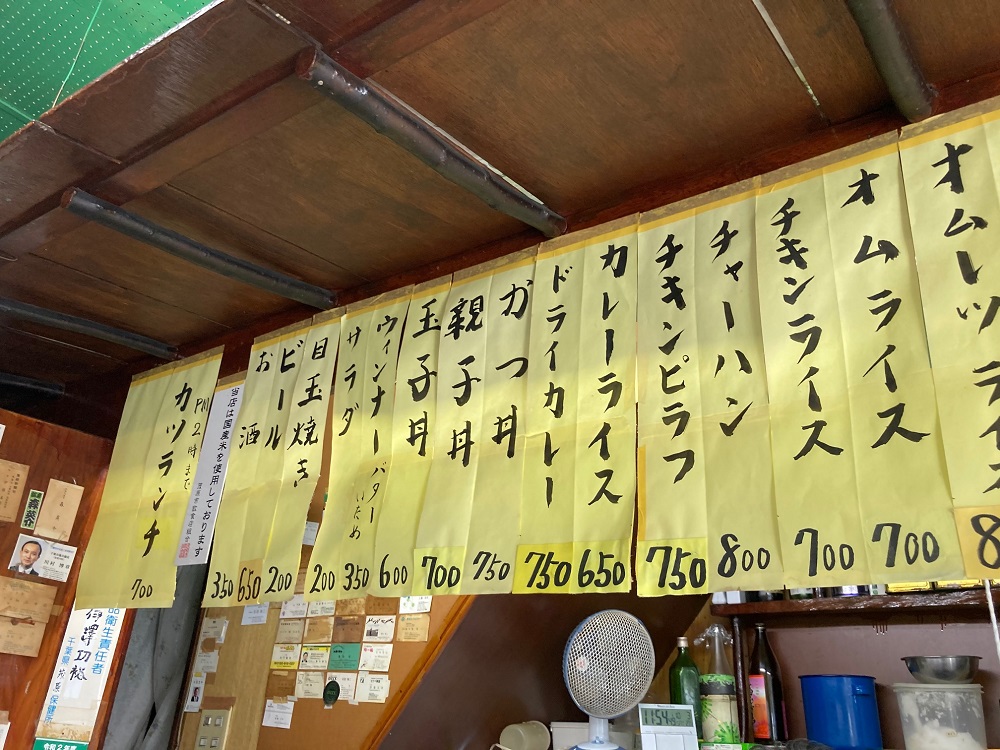 オムレツライス
8
オムライス
700
チキンライス
700
チャーハン
800
チキンピラフ
750
カレーライス
650
ドライカレー
750
かつ丼
750
親子丼
700
玉子丼
600
ウィンナーバターいため
350
サラダ
200
目玉焼き
200
ビール
650
お酒
350
当店は国産米を使用しております
PM2時まで
カツランチ
700
品衛生責任者
千葉県茂原保健所
令和2年度
森英介
11:54